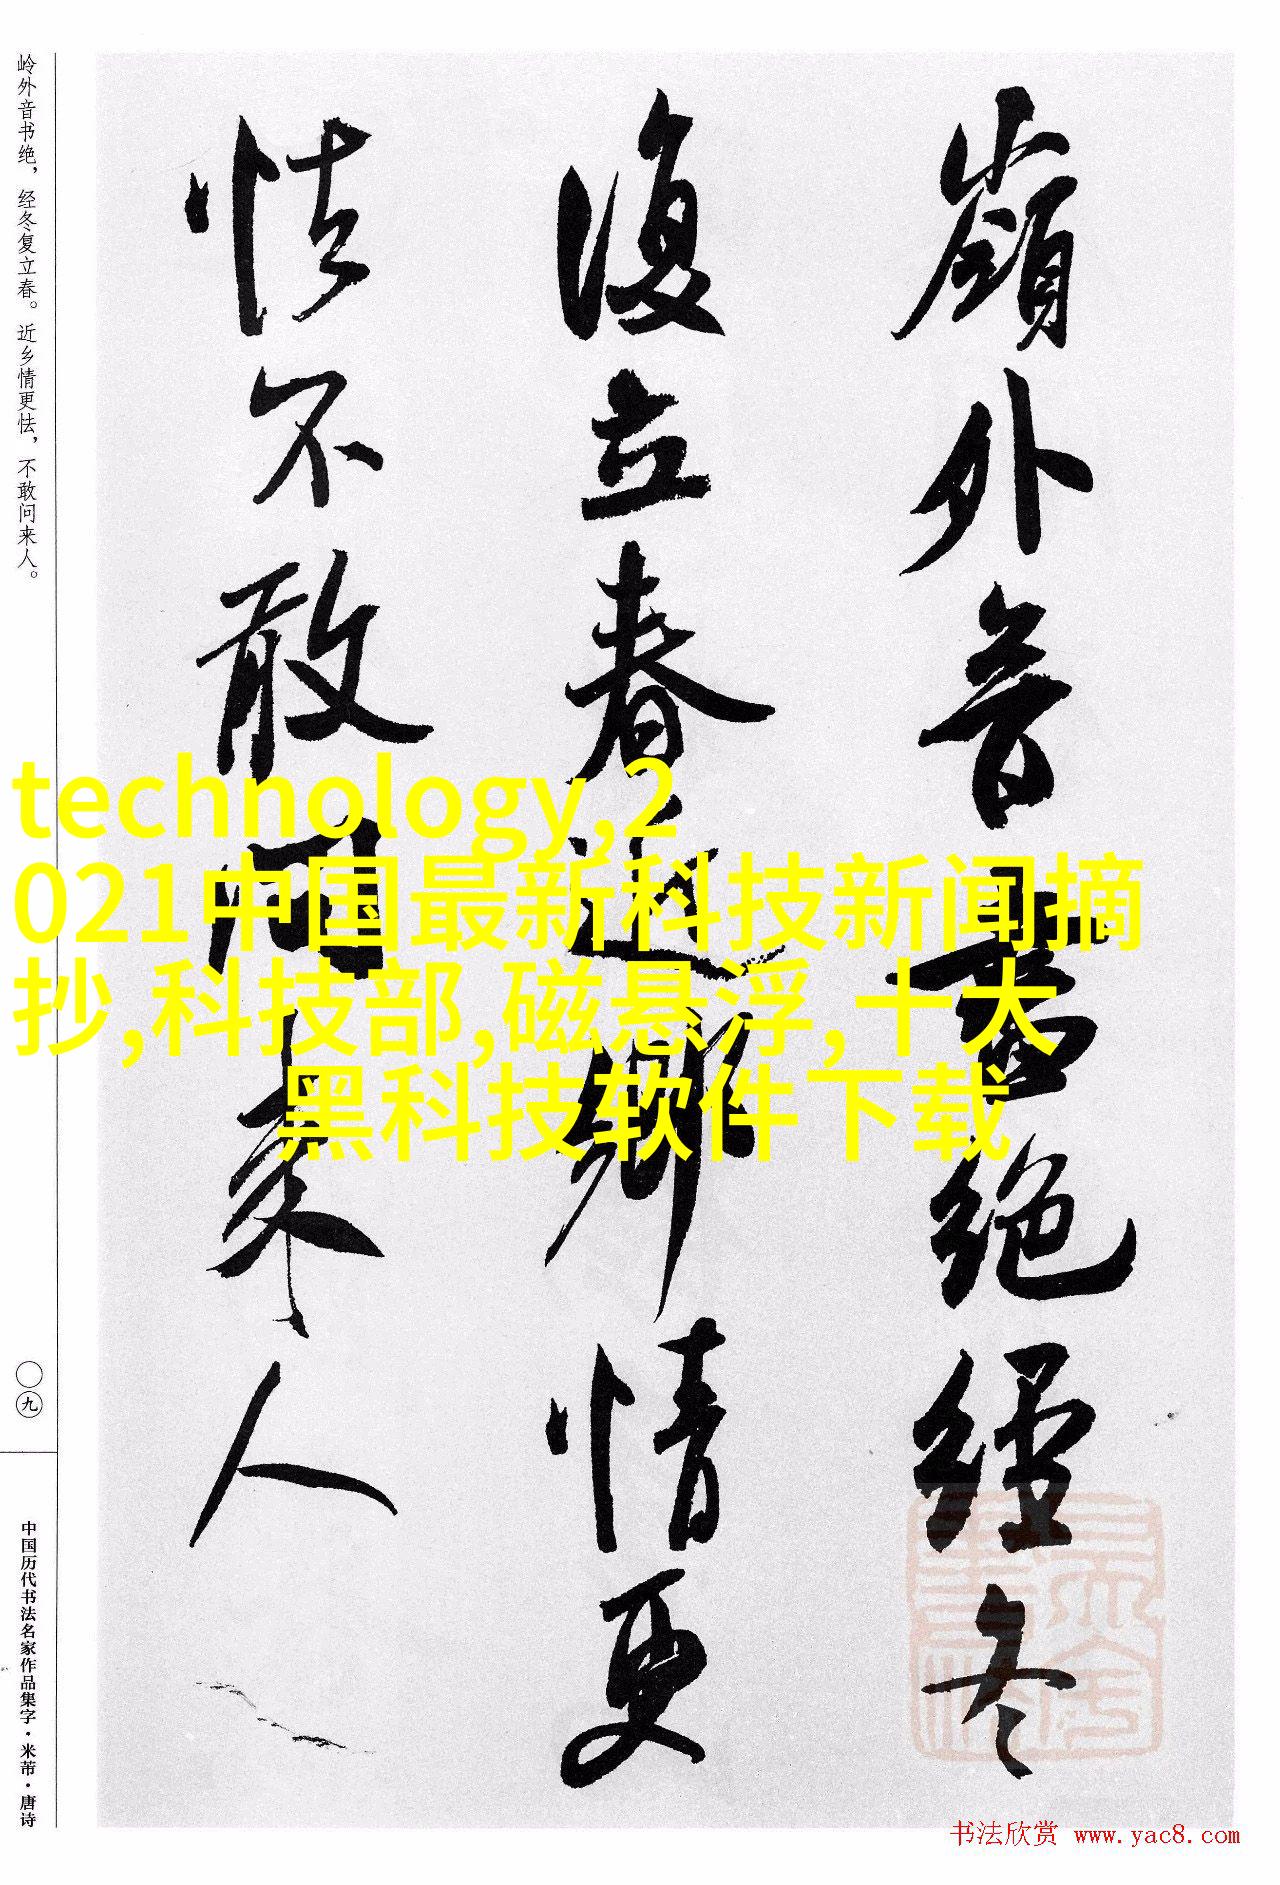 嶺外音書絕經冬
復立春近鄉情更
怯不敢問來人
岭外音书绝，经冬复立春。近乡情更怯，不敢问来人。
〇九
中国历代书法名家作品集字·米芾·唐诗
technology,2
021中国最新科技新闻摘
抄,科技部,磁悬浮,十大
黑科技软件下载
书法欣赏 www.yac8.com